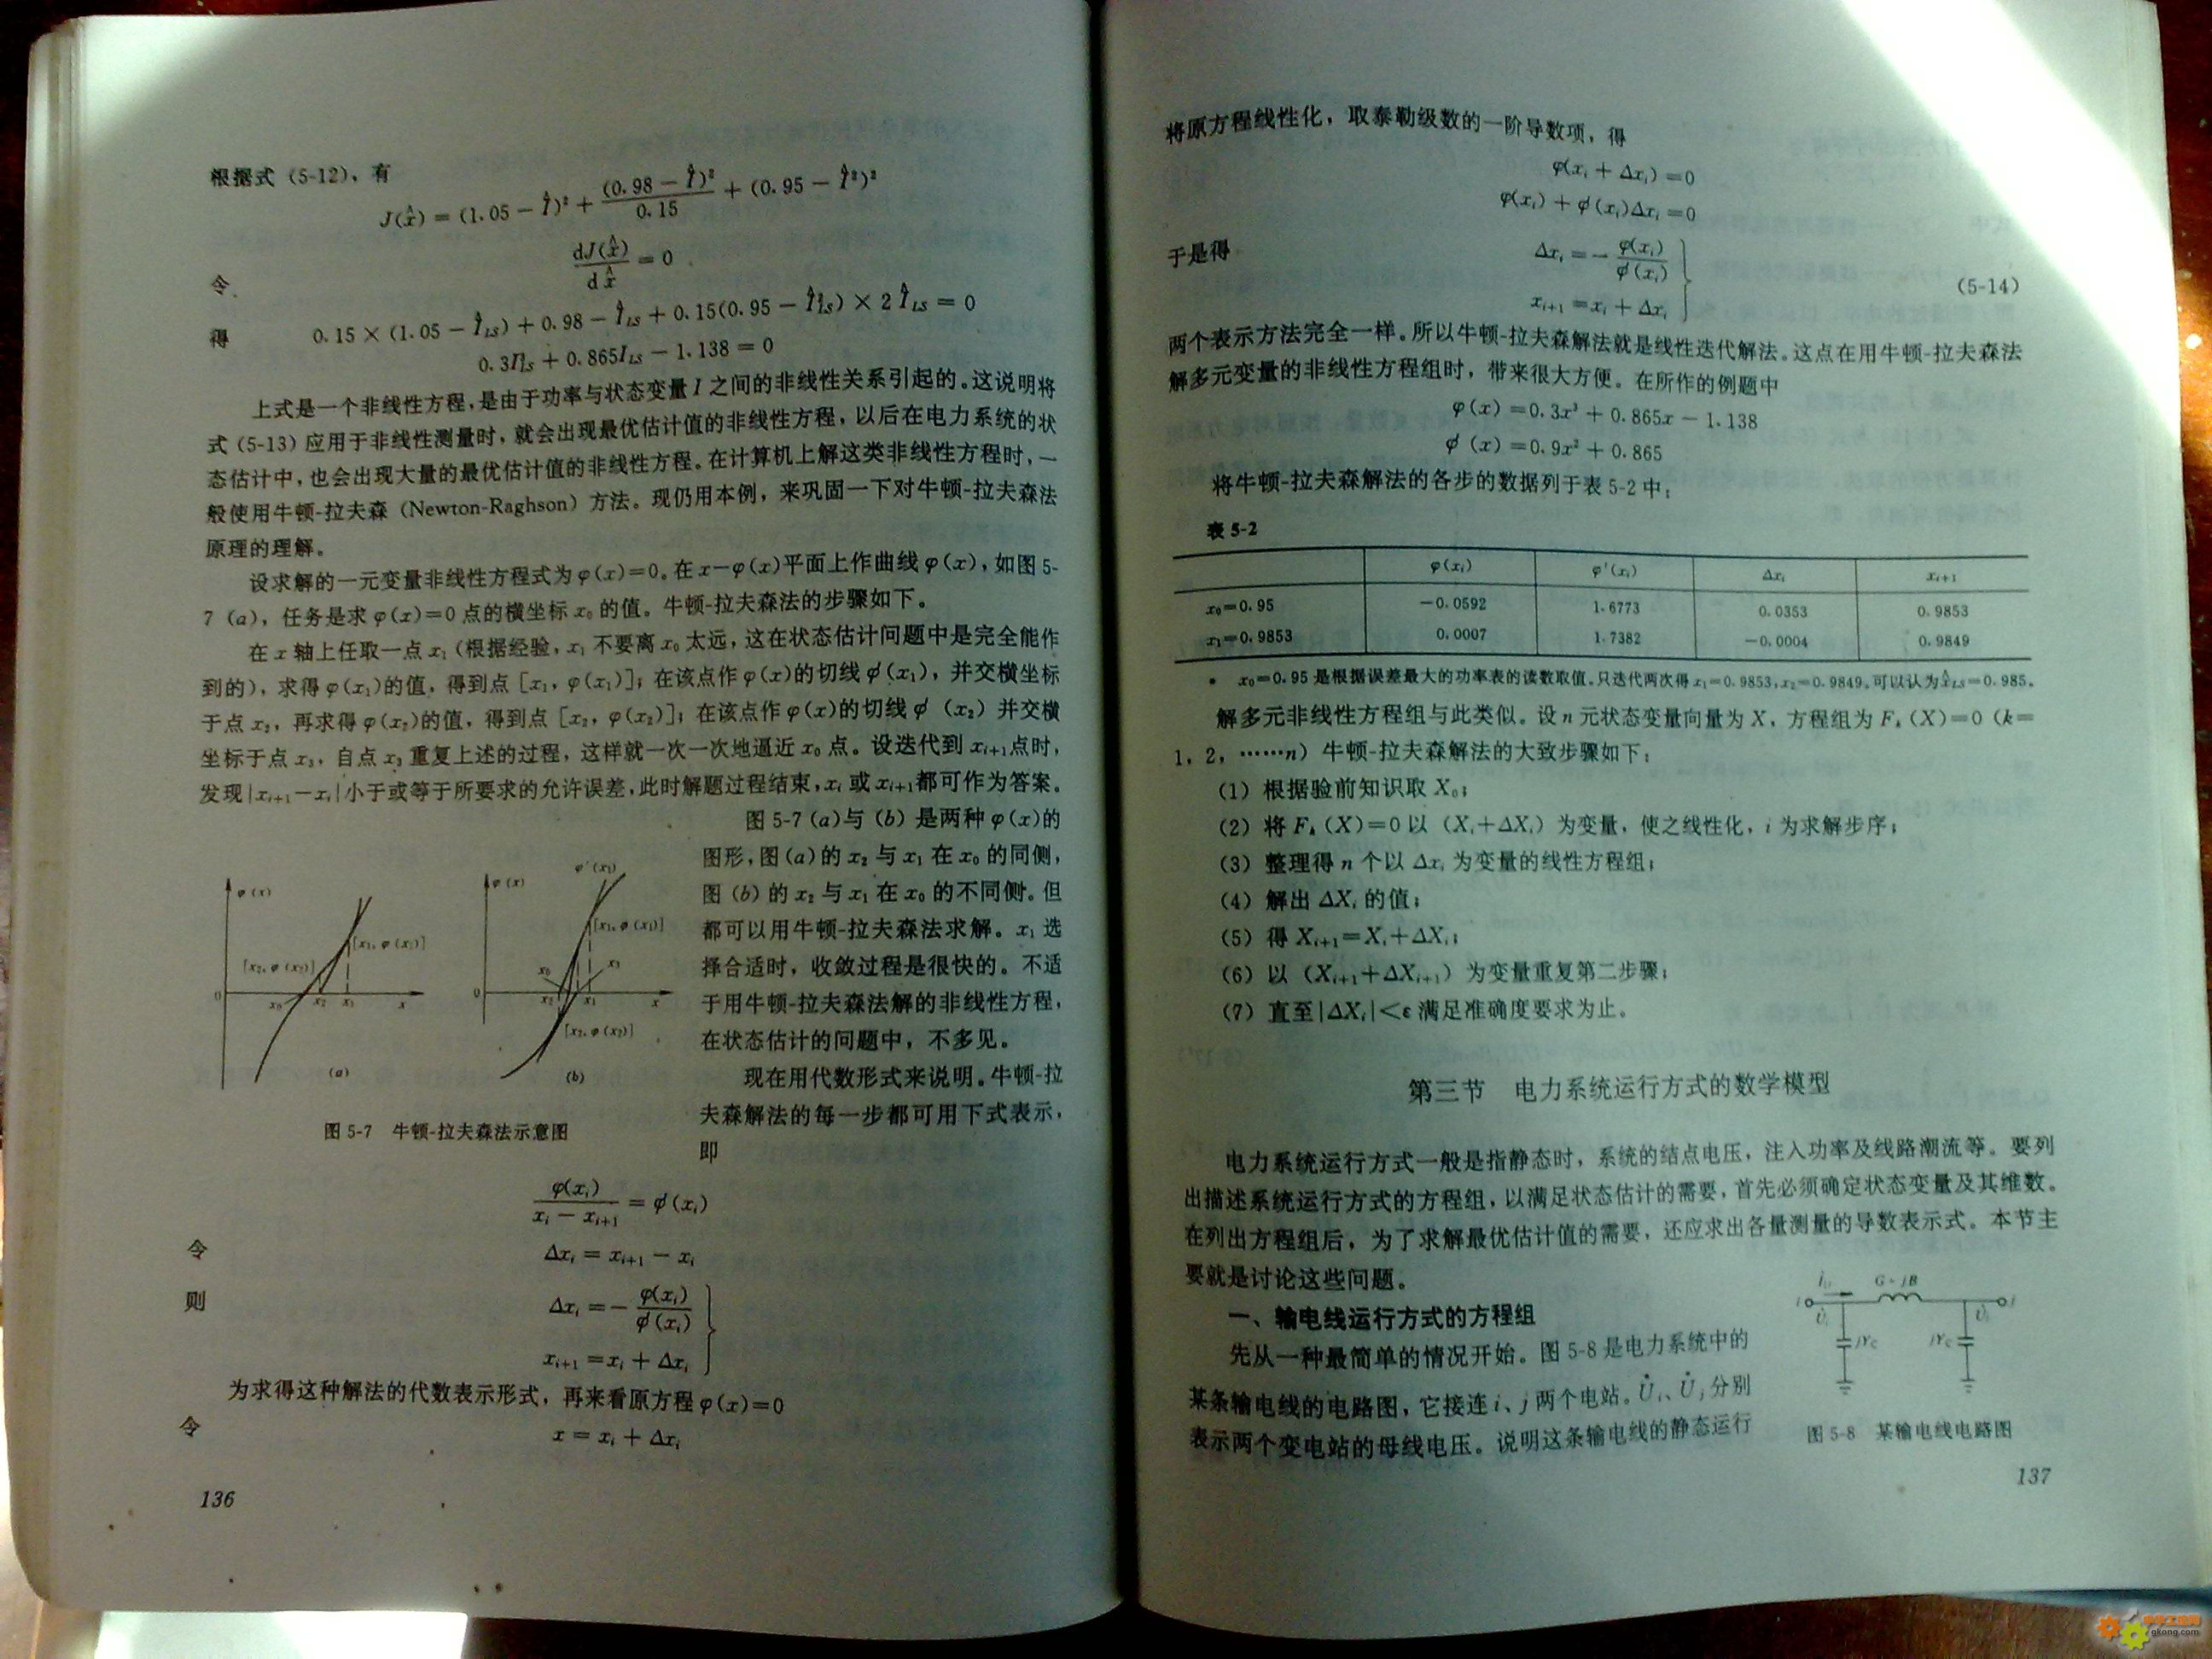 根据式（5-12），有
J(x̂) = (1.05 − Î)² + (0.98 − Î)²/0.15 + (0.95 − Î²)²
令
dJ(x̂)/dx̂ = 0
得 0.15 × (1.05 − Î_LS) + 0.98 − Î_LS + 0.15(0.95 − Î²_LS) × 2Î_LS = 0
0.3I³_LS + 0.865I_LS − 1.138 = 0
上式是一个非线性方程，是由于功率与状态变量 I 之间的非线性关系引起的。这说明将
式（5-13）应用于非线性测量时，就会出现最优估计值的非线性方程，以后在电力系统的状
态估计中，也会出现大量的最优估计值的非线性方程。在计算机上解这类非线性方程时，一
般使用牛顿-拉夫森（Newton-Raghson）方法。现仍用本例，来巩固一下对牛顿-拉夫森法
原理的理解。
设求解的一元变量非线性方程式为 φ(x)=0。在 x—φ(x)平面上作曲线 φ(x)，如图 5-
7（a），任务是求 φ(x)=0 点的横坐标 x₀ 的值。牛顿-拉夫森法的步骤如下。
在 x 轴上任取一点 x₁（根据经验，x₁ 不要离 x₀ 太远，这在状态估计问题中是完全能作
到的），求得 φ(x₁)的值，得到点［x₁，φ(x₁)］；在该点作 φ(x)的切线 φ′(x₁)，并交横坐标
于点 x₂，再求得 φ(x₂)的值，得到点［x₂，φ(x₂)］；在该点作 φ(x)的切线 φ′（x₂）并交横
坐标于点 x₃，自点 x₃ 重复上述的过程，这样就一次一次地逼近 x₀ 点。设迭代到 xᵢ₊₁点时，
发现|xᵢ₊₁−xᵢ|小于或等于所要求的允许误差，此时解题过程结束，xᵢ 或 xᵢ₊₁都可作为答案。
图 5-7（a）与（b）是两种 φ(x)的
图形，图（a）的 x₂ 与 x₁ 在 x₀ 的同侧，
图（b）的 x₂ 与 x₁ 在 x₀ 的不同侧。但
都可以用牛顿-拉夫森法求解。x₁ 选
择合适时，收敛过程是很快的。不适
于用牛顿-拉夫森法解的非线性方程，
在状态估计的问题中，不多见。
现在用代数形式来说明。牛顿-拉
夫森解法的每一步都可用下式表示，
即
φ(x)
[x₁，φ(x₁)]
[x₂，φ(x₂)]
0 x₀ x₂ x₁ x
(a)
φ(x) φ′(x₁)
[x₁，φ(x₁)]
x₀ x₃
0 x₂ x₁ x
[x₂，φ(x₂)]
(b)
图 5-7 牛顿-拉夫森法示意图
φ(xᵢ)/(xᵢ − xᵢ₊₁) = φ′(xᵢ)
令 Δxᵢ = xᵢ₊₁ − xᵢ
则 Δxᵢ = − φ(xᵢ)/φ′(xᵢ)
xᵢ₊₁ = xᵢ + Δxᵢ
为求得这种解法的代数表示形式，再来看原方程 φ(x)=0
令 x = xᵢ + Δxᵢ
136
将原方程线性化，取泰勒级数的一阶导数项，得
φ(xᵢ + Δxᵢ) = 0
φ(xᵢ) + φ′(xᵢ)Δxᵢ = 0
于是得 Δxᵢ = − φ(xᵢ)/φ′(xᵢ)
xᵢ₊₁ = xᵢ + Δxᵢ （5-14）
两个表示方法完全一样。所以牛顿-拉夫森解法就是线性迭代解法。这点在用牛顿-拉夫森法
解多元变量的非线性方程组时，带来很大方便。在所作的例题中
φ(x) = 0.3x³ + 0.865x − 1.138
φ′(x) = 0.9x² + 0.865
将牛顿-拉夫森解法的各步的数据列于表 5-2 中：
表 5-2
φ(xᵢ) φ′(xᵢ) Δxᵢ xᵢ₊₁
x₀=0.95 −0.0592 1.6773 0.0353 0.9853
x₁=0.9853 0.0007 1.7382 −0.0004 0.9849
* x₀=0.95 是根据误差最大的功率表的读数取值。只迭代两次得 x₁=0.9853，x₂=0.9849，可以认为x̂_LS=0.985。
解多元非线性方程组与此类似。设 n 元状态变量向量为 X，方程组为 Fₖ（X）=0（k=
1，2，……n）牛顿-拉夫森解法的大致步骤如下：
（1）根据验前知识取 X₀；
（2）将 Fₖ（X）=0 以（Xᵢ+ΔXᵢ）为变量，使之线性化，i 为求解步序；
（3）整理得 n 个以 Δxᵢ 为变量的线性方程组；
（4）解出 ΔXᵢ 的值；
（5）得 Xᵢ₊₁=Xᵢ+ΔXᵢ；
（6）以（Xᵢ₊₁+ΔXᵢ₊₁）为变量重复第二步骤；
（7）直至|ΔXᵢ|<ε 满足准确度要求为止。
第三节 电力系统运行方式的数学模型
电力系统运行方式一般是指静态时，系统的结点电压，注入功率及线路潮流等。要列
出描述系统运行方式的方程组，以满足状态估计的需要，首先必须确定状态变量及其维数。
在列出方程组后，为了求解最优估计值的需要，还应求出各量测量的导数表示式。本节主
要就是讨论这些问题。
一、输电线运行方式的方程组
先从一种最简单的情况开始。图 5-8 是电力系统中的
某条输电线的电路图，它接连 i、j 两个电站。U̇ᵢ、U̇ⱼ 分别
表示两个变电站的母线电压。说明这条输电线的静态运行
G+jB
jYc jYc
图 5-8 某输电线电路图
137
gkong.com